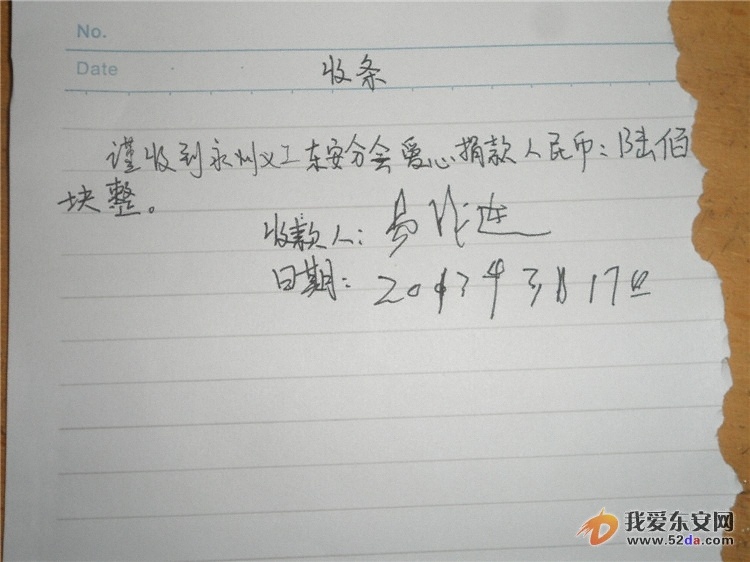 No.
Date
收条
谨收到永州义工东安分会爱心捐款人民币：陆佰
块整。
收款人：
日期：2013年3月17日
我爱东安网
www.52da.com